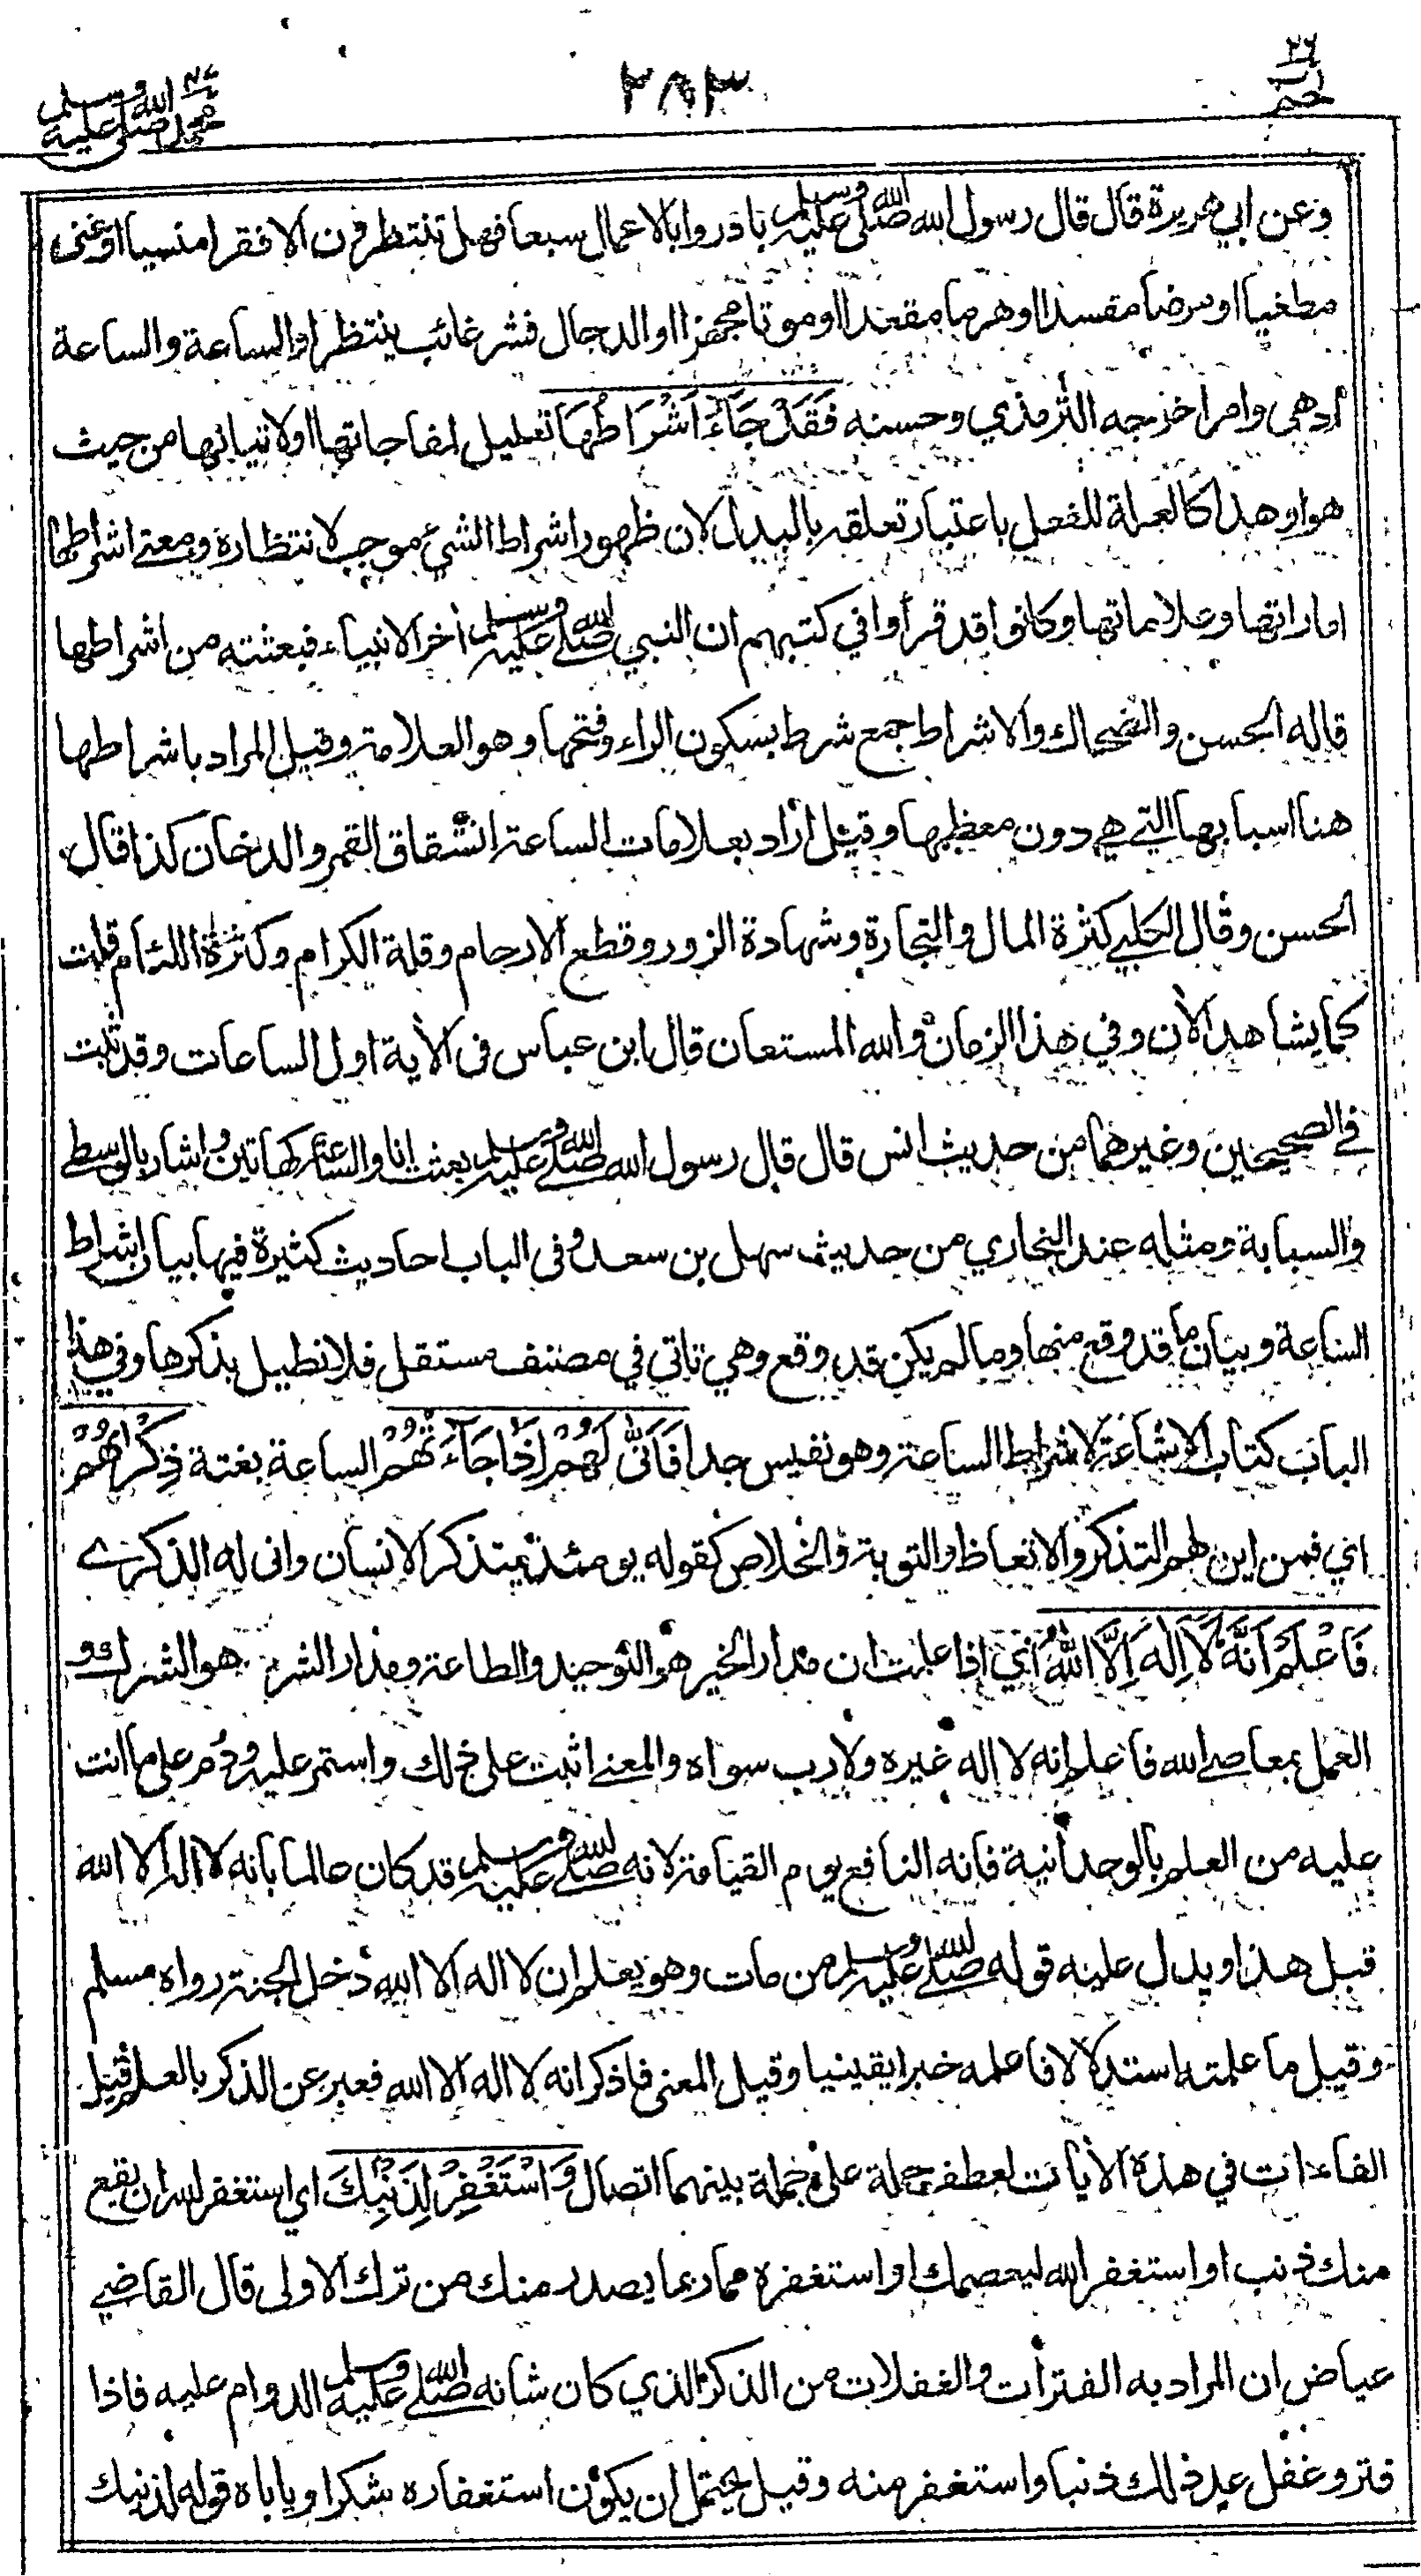 ٢٦
حم
٢٨٣
٤٧
محمد صلى الله عليه وسلم
وعن ابي هريرة قال قال رسول الله صلى الله عليه وسلم بادروا بالاعمال سبعا فهل تنتظرون الا فقرا منسيا او غنى
مطغيا او مرضا مفسدا او هرما مفندا او موتا مجهزا او الدجال فشر غائب ينتظر او الساعة والساعة
أدهى وامر اخرجه الترمذي وحسنه فَقَدْ جَآءَ اَشْرَاطُهَا تعليل لمفاجاتها او لاتيانها من حيث
هو او هذا كالعلة للفعل باعتبار تعلقه بالبدل لان ظهور اشراط الشئ موجب لانتظاره ومعنے اشراطها
اماراتها وعلاماتها وكانوا قد قرأوا في كتبهم ان النبي صلى الله عليه وسلم أخر الانبياء فبعثته من اشراطها
قاله الحسن والضحاك والاشراط جمع شرط بسكون الراء وفتحها وهو العلامة وقيل المراد باشراطها
هنا اسبابها التي هي دون معظمها وقيل أراد بعلامات الساعة انشقاق القمر والدخان كذا قال
الحسن وقال الكلبي كثرة المال والتجارة وشهادة الزور وقطع الارحام وقلة الكرام وكثرة اللئام قلت
كما يشاهد الأن وفي هذا الزمان والله المستعان قال ابن عباس فى الأية اول الساعات وقد ثبت
في الصحيحين وغيرهما من حديث انس قال قال رسول الله صلى الله عليه وسلم بعثت انا والساعة كهاتين واشار بالوسطى
والسبابة ومثله عند البخاري من حديث سهل بن سعد وفى الباب احاديث كثيرة فيها بيان اشراط
الساعة وبيان ما قد وقع منها وما لم يكن قد وقع وهي تاتي في مصنف مستقل فلا نطيل بذكرها وفي هذا
الباب كتاب الاشاعة لاشراط الساعة وهو نفيس جدا فَاَنّٰى لَهُمْ اِذَا جَآءَتْهُمْ الساعة بغتة ذِكْرٰىهُمْ
اي فمن اين لهم التذكر والاتعاظ والتوبة والخلاص كقوله يومئذ يتذكر الانسان وانى له الذكرے
فَاعْلَمْ اَنَّهُ لَآ اِلٰهَ اِلَّا اللّٰهُ اي اذا علمت ان مدار الخير هو التوحيد والطاعة ومدار الشر هو الشرك و
العمل بمعاصي الله فاعلم انه لا اله غيره ولا رب سواه والمعنے اثبت على ذلك واستمر عليه ودُم على ما انت
عليه من العلم بالوحدانية فانه النافع يوم القيامة لانه صلى الله عليه وسلم قد كان عالما بانه لا اله الا الله
قبل هذا ويدل عليه قوله صلى الله عليه وسلم من مات وهو يعلم ان لا اله الا الله دخل الجنة رواه مسلم
وقيل ما علمته استدلالا فاعلمه خبرا يقينيا وقيل المعنى فاذكر انه لا اله الا الله فعبر عن الذكر بالعلم قيل
الفاءات في هذه الأيات لعطف جملة على جملة بينهما اتصال وَاسْتَغْفِرْ لِذَنْبِكَ اي استغفر الله ان يقع
منك ذنب او استغفر الله ليعصمك او استغفره مما ربما يصدر منك من ترك الاولى قال القاضے
عياض ان المراد به الفترات والغفلات من الذكر الذي كان شانه صلى الله عليه وسلم الدوام عليه فاذا
فتر وغفل عد ذلك ذنبا واستغفر منه وقيل يحتمل ان يكون استغفاره شكرا وياباه قوله لذنبك